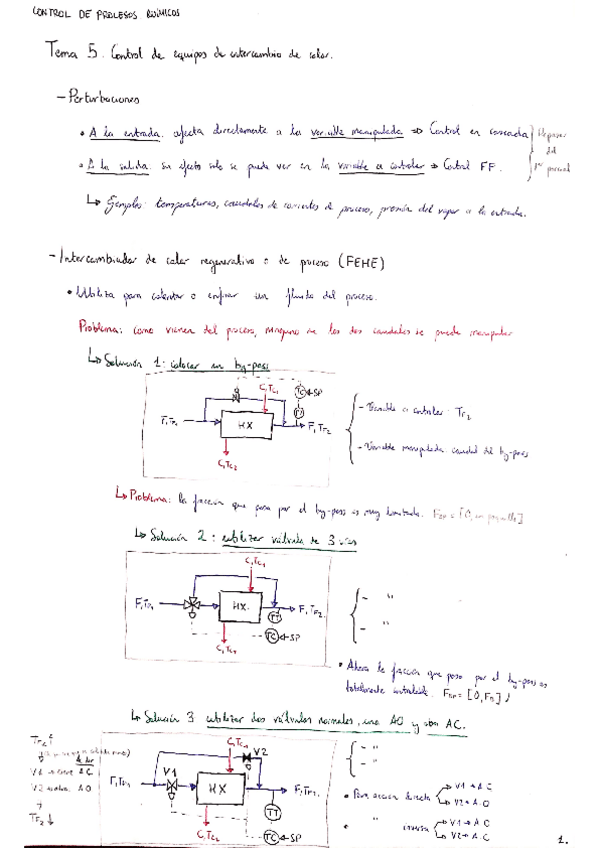 CONTROL DE PROCESOS QUÍMICOS
Tema 5. Control de equipos de intercambio de calor.
- Perturbaciones
• A la entrada: afecta directamente a la variable manipulada ⇒ Control en cascada
• A la salida: su efecto solo se puede ver en la variable a controlar ⇒ Control FF.
Repasar
del
1er parcial
↳ Ejemplos: temperaturas, caudales de corrientes de proceso, presión del vapor a la entrada.
- Intercambiador de calor regenerativo o de proceso (FEHE)
• Utiliza para calentar o enfriar un fluido del proceso.
Problema: como vienen del proceso, ninguno de los dos caudales se puede manipular
↳ Solución 1: colocar un by-pass
C, Tc1
TC ← SP
TT
F, TF1
HX
F, TF2
C, Tc2
- Variable a controlar: TF2
- Variable manipulada: caudal del by-pass
↳ Problema: la fracción que pasa por el by-pass es muy limitada.
↳ Solución 2: utilizar válvula de 3 vías
C, Tc1
F, TF1
HX
F, TF2
TT
TC ← SP
- "
- "
• Ahora la fracción que pasa por el by-pass es
totalmente controlable.
↳ Solución 3 utilizar dos válvulas normales, una AO y otra AC.
C, Tc1
V2
V1
F, TF1
HX
TT
C, Tc2
TC ← SP
- "
- "
• Para acción directa
V1 → AC
V2 → AO
• " inversa
V1 → AC
V2 → AC
TF2 ↑
V1 → cierra AC
V2 → abre AO
TF2 ↓
1.